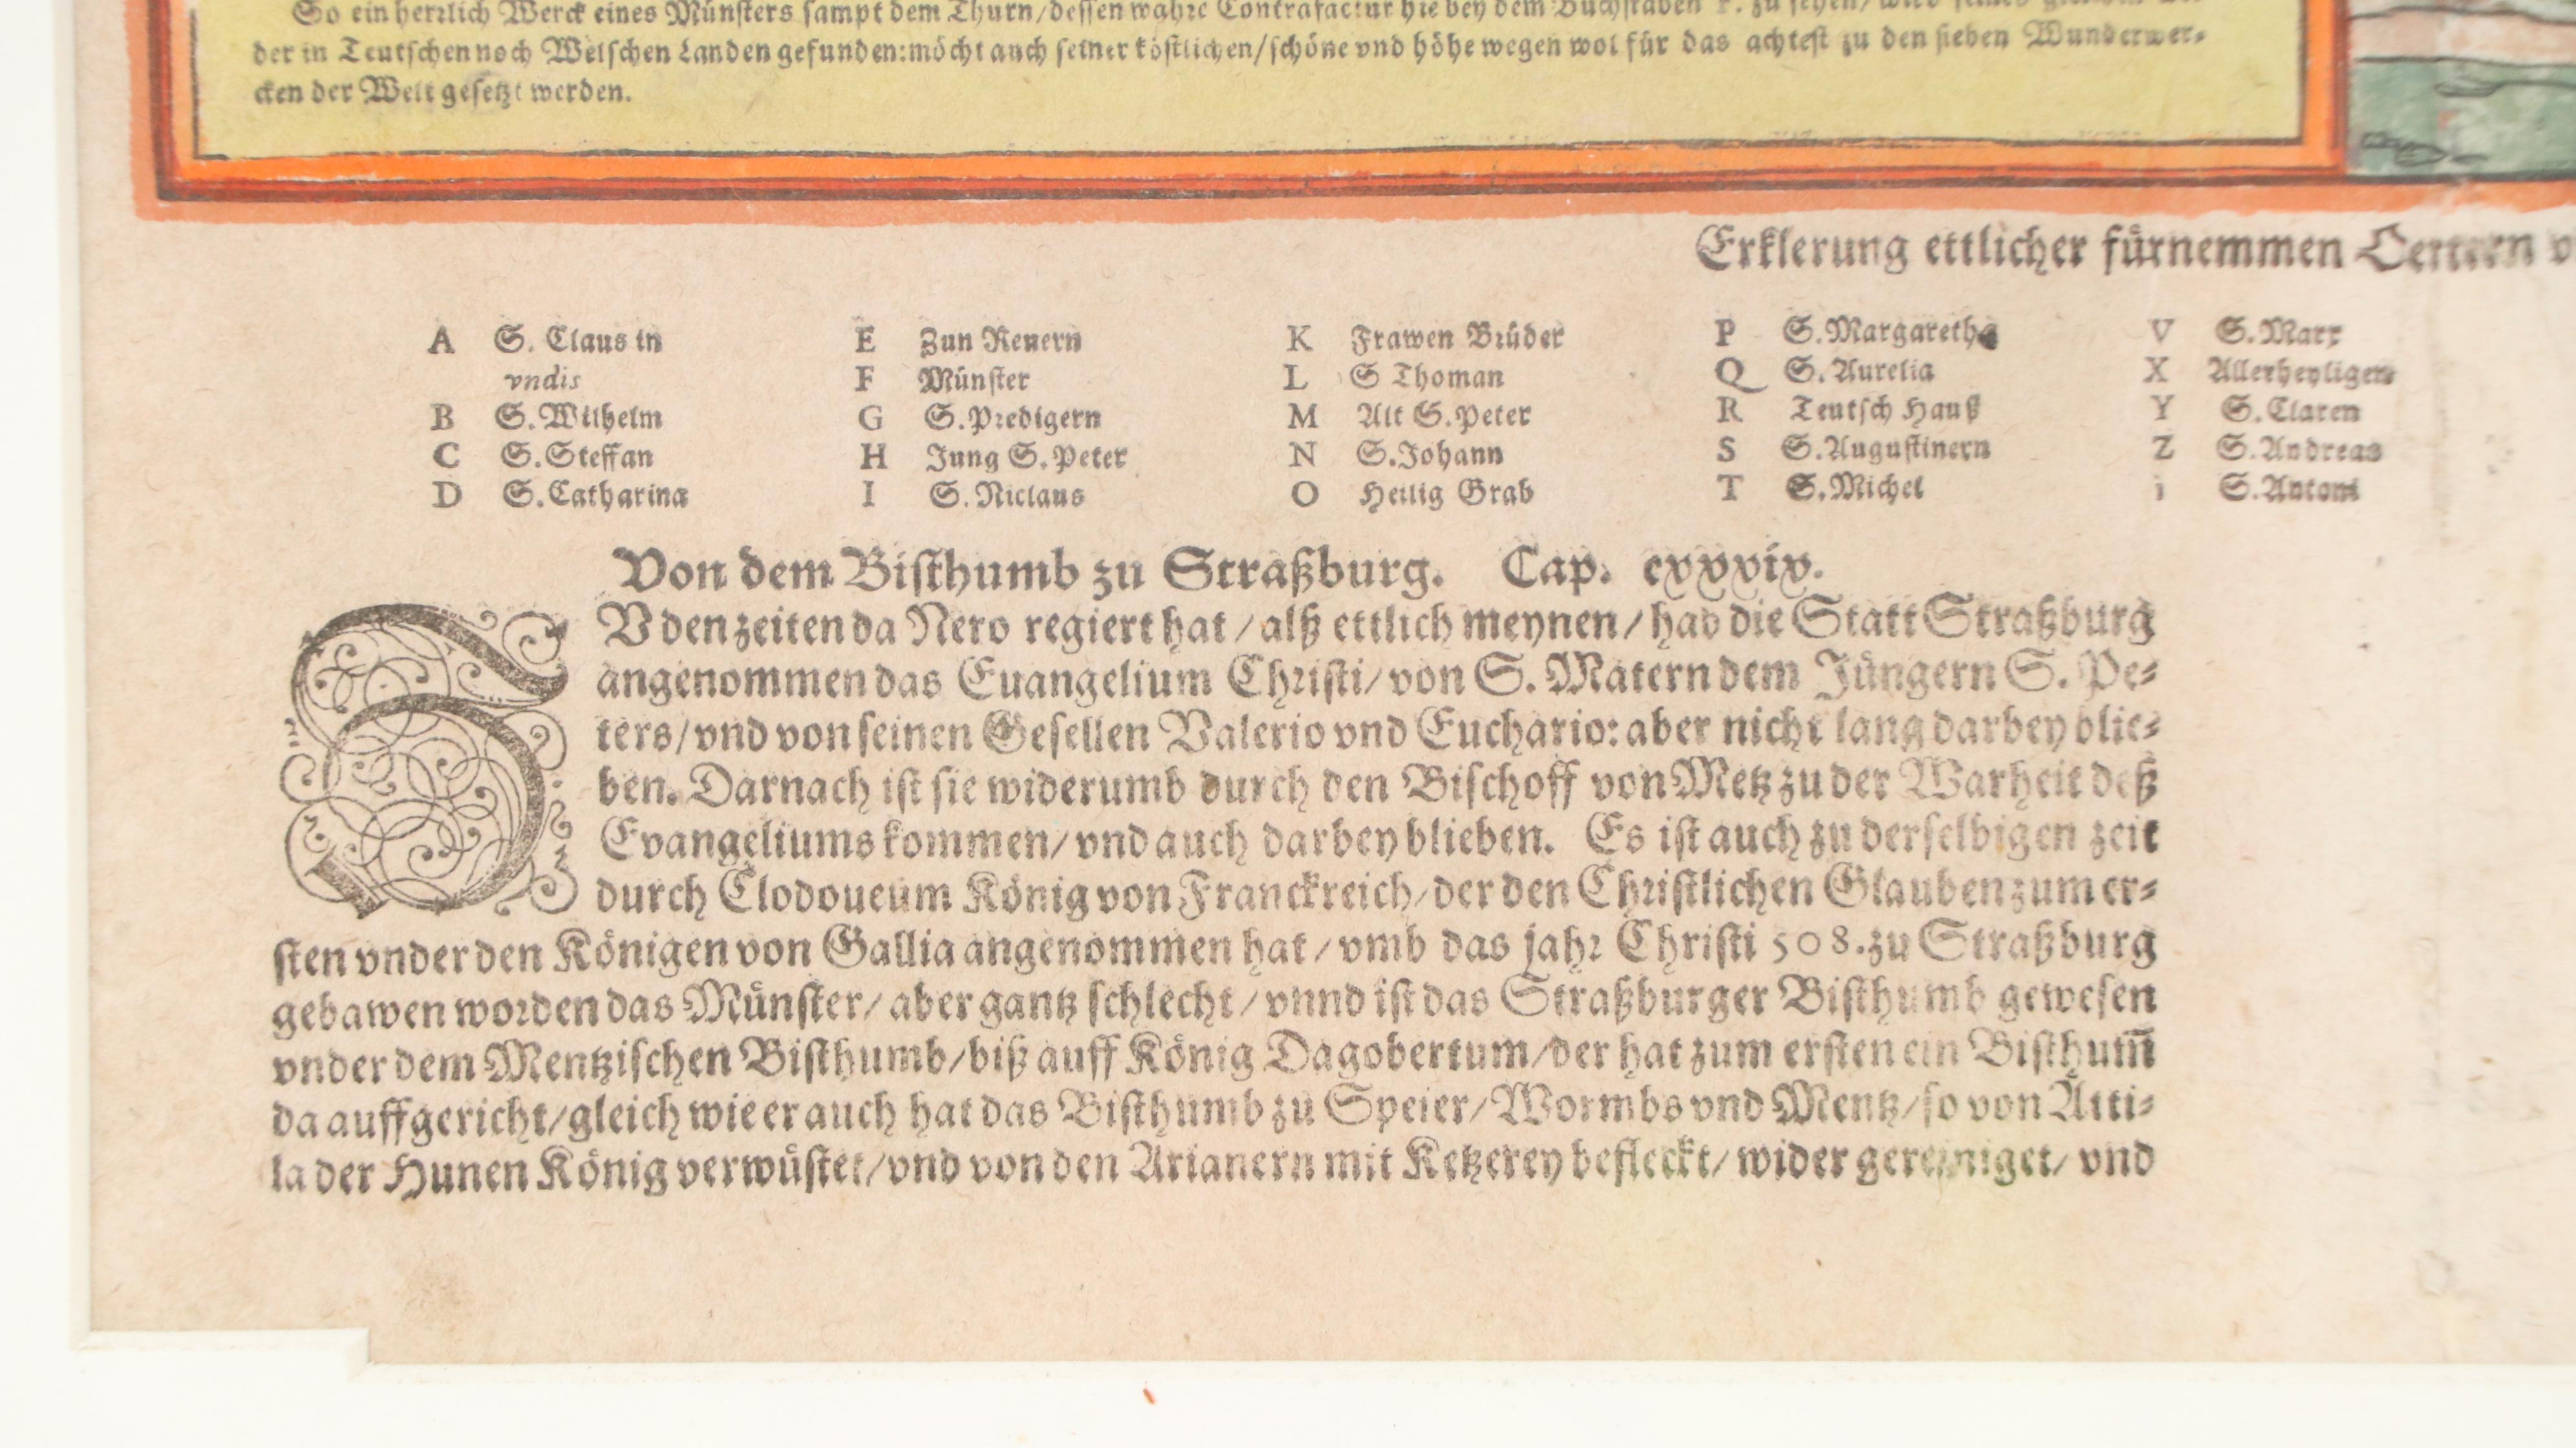 So ein herrlich Werck eines Münsters sampt dem Thurn/dessen wahre Contrafactur hie bey dem Buchstaben F. zu sehen/wird seines
der in Teutschen noch Welschen Landen gefunden:möcht auch seiner köstlichen/schöne vnd höhe wegen wol für das achtest zu den sieben Wunderwer-
cken der Welt gesetzt werden.
Erklerung ettlicher fürnemmen Oertern
A S. Claus in vndis
B S.Wilhelm
C S.Steffan
D S.Catharina
E Zun Reuern
F Münster
G S.Predigern
H Jung S.Peter
I S.Niclaus
K Frawen Brüder
L S Thoman
M Alt S.Peter
N S.Johann
O Heilig Grab
P S.Margaretha
Q S.Aurelia
R Teutsch Hauß
S S.Augustinern
T S.Michel
V S.Marx
X Allerheyligen
Y S.Claren
Z S.Andreas
1 S.Antoni
Von dem Bisthumb zu Straßburg. Cap. cxxxix.
ZV den zeiten da Nero regiert hat/alß ettlich meynen/had die Statt Straßburg
angenommen das Euangelium Christi/von S. Matern dem Jüngern S. Pe-
ters/vnd von seinen Gesellen Valerio vnd Euchario:aber nicht lang darbey blie-
ben. Darnach ist sie widerumb durch den Bischoff von Metz zu der Warheit deß
Evangeliums kommen/vnd auch darbey blieben. Es ist auch zu derselbigen zeit
durch Clodoueum König von Franckreich/der den Christlichen Glauben zum er-
sten vnder den Königen von Gallia angenommen hat/vmb das jahr Christi 508.zu Straßburg
gebawen worden das Münster/aber gantz schlecht/vnnd ist das Straßburger Bisthumb gewesen
vnder dem Mentzischen Bisthumb/biß auff König Dagobertum/der hat zum ersten ein Bisthum̄
da auffgericht/gleich wie er auch hat das Bisthumb zu Speier/Wormbs vnd Mentz/so von Atti-
la der Hunen König verwüstet/vnd von den Arianern mit Ketzerey befleckt/wider gereiniget/vnd